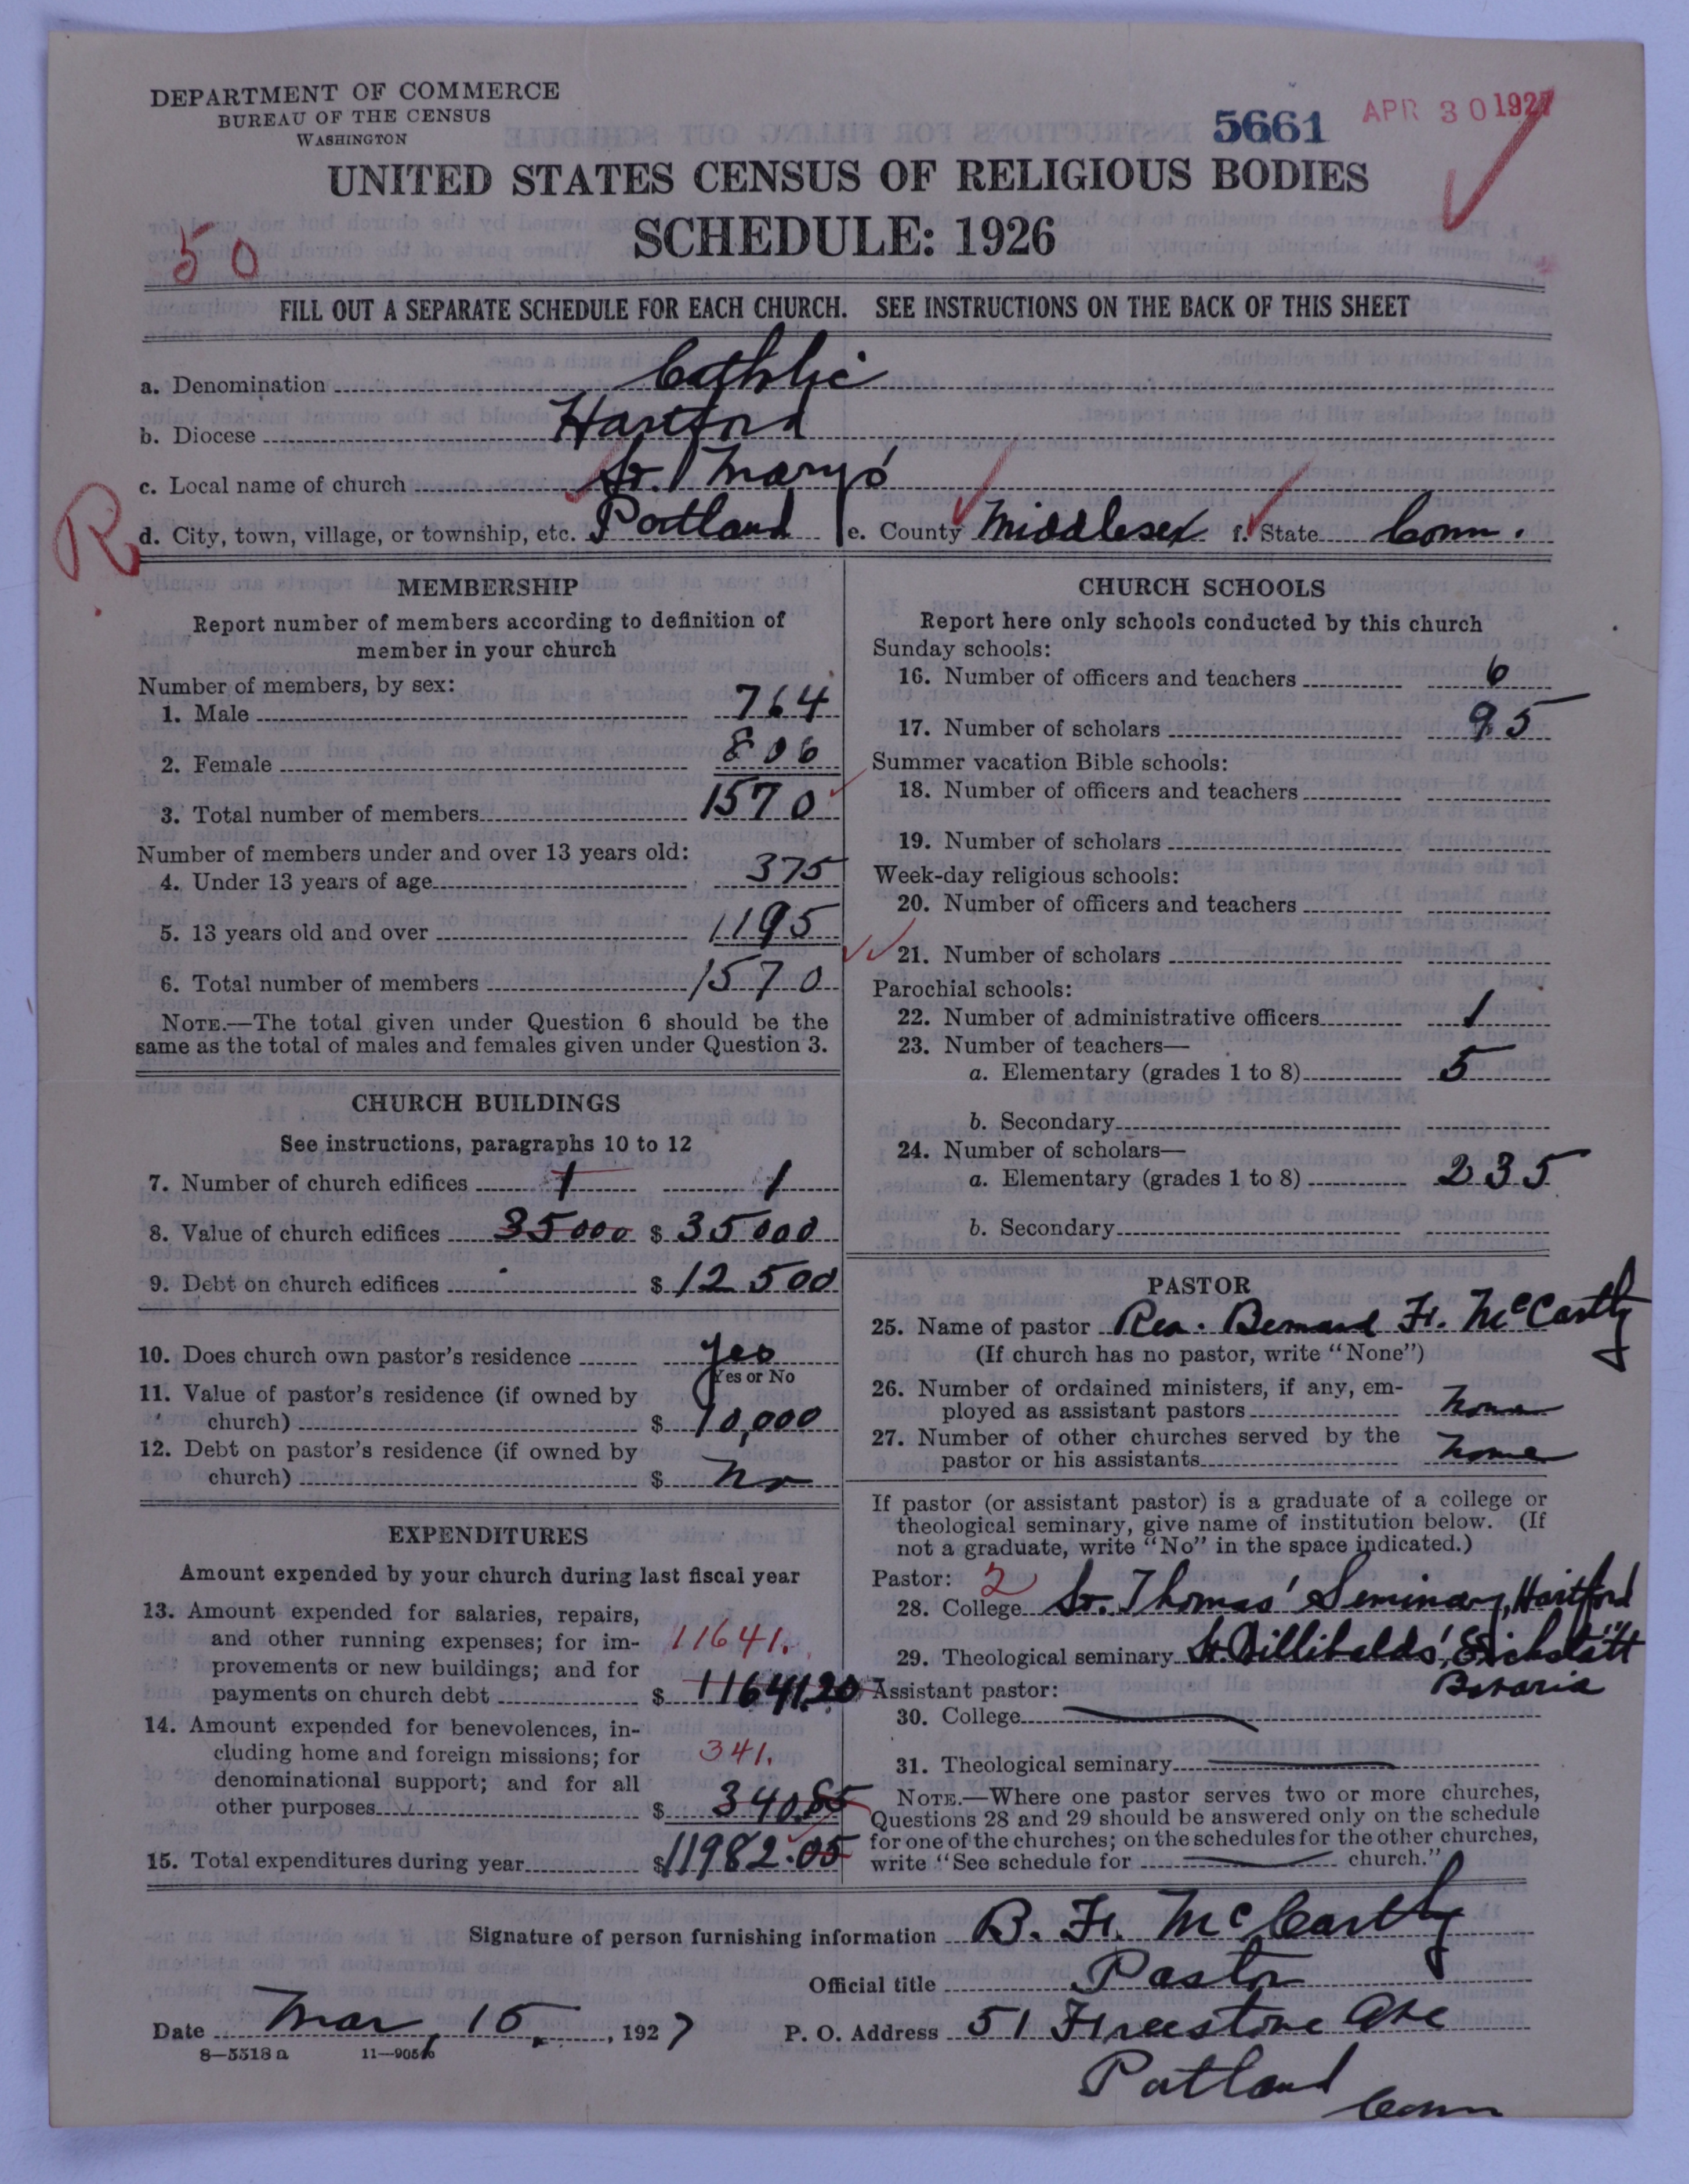 DEPARTMENT OF COMMERCE
BUREAU OF THE CENSUS
WASHINGTON
5661 APR 30 1927
UNITED STATES CENSUS OF RELIGIOUS BODIES
SCHEDULE: 1926
50
FILL OUT A SEPARATE SCHEDULE FOR EACH CHURCH. SEE INSTRUCTIONS ON THE BACK OF THIS SHEET
a. Denomination Catholic
b. Diocese Hartford
c. Local name of church St. Mary's
R
d. City, town, village, or township, etc. Portland e. County Middlesex f. State Conn.
MEMBERSHIP
Report number of members according to definition of
member in your church
Number of members, by sex:
1. Male 764
2. Female 806
3. Total number of members 1570
Number of members under and over 13 years old:
4. Under 13 years of age 375
5. 13 years old and over 1195
6. Total number of members 1570
NOTE.—The total given under Question 6 should be the
same as the total of males and females given under Question 3.
CHURCH BUILDINGS
See instructions, paragraphs 10 to 12
7. Number of church edifices 1 1
8. Value of church edifices 35000 $ 35000
9. Debt on church edifices $ 12500
10. Does church own pastor's residence yes
Yes or No
11. Value of pastor's residence (if owned by
church) $ 10,000
12. Debt on pastor's residence (if owned by
church) $ No
EXPENDITURES
Amount expended by your church during last fiscal year
13. Amount expended for salaries, repairs,
and other running expenses; for im- 11641.
provements or new buildings; and for
payments on church debt $ 11641.20
14. Amount expended for benevolences, in-
cluding home and foreign missions; for 341.
denominational support; and for all
other purposes $ 340.85
15. Total expenditures during year $ 11982.05
CHURCH SCHOOLS
Report here only schools conducted by this church
Sunday schools:
16. Number of officers and teachers 6
17. Number of scholars 95
Summer vacation Bible schools:
18. Number of officers and teachers
19. Number of scholars
Week-day religious schools:
20. Number of officers and teachers
21. Number of scholars
Parochial schools:
22. Number of administrative officers 1
23. Number of teachers—
a. Elementary (grades 1 to 8) 5
b. Secondary
24. Number of scholars—
a. Elementary (grades 1 to 8) 235
b. Secondary
PASTOR
25. Name of pastor Rev. Bernard Fr. McCarthy
(If church has no pastor, write "None")
26. Number of ordained ministers, if any, em-
ployed as assistant pastors none
27. Number of other churches served by the
pastor or his assistants none
If pastor (or assistant pastor) is a graduate of a college or
theological seminary, give name of institution below. (If
not a graduate, write "No" in the space indicated.)
Pastor: 2
28. College St. Thomas' Seminary, Hartford
29. Theological seminary St. Willibalds', Eichstätt
Bavaria
Assistant pastor:
30. College
31. Theological seminary
NOTE.—Where one pastor serves two or more churches,
Questions 28 and 29 should be answered only on the schedule
for one of the churches; on the schedules for the other churches,
write "See schedule for church."
Signature of person furnishing information B. Fr. McCarthy
Official title Pastor
Date Mar, 15, 1927 P. O. Address 51 Freestone Ave
8—5518 a 11—9056
Portland
Conn